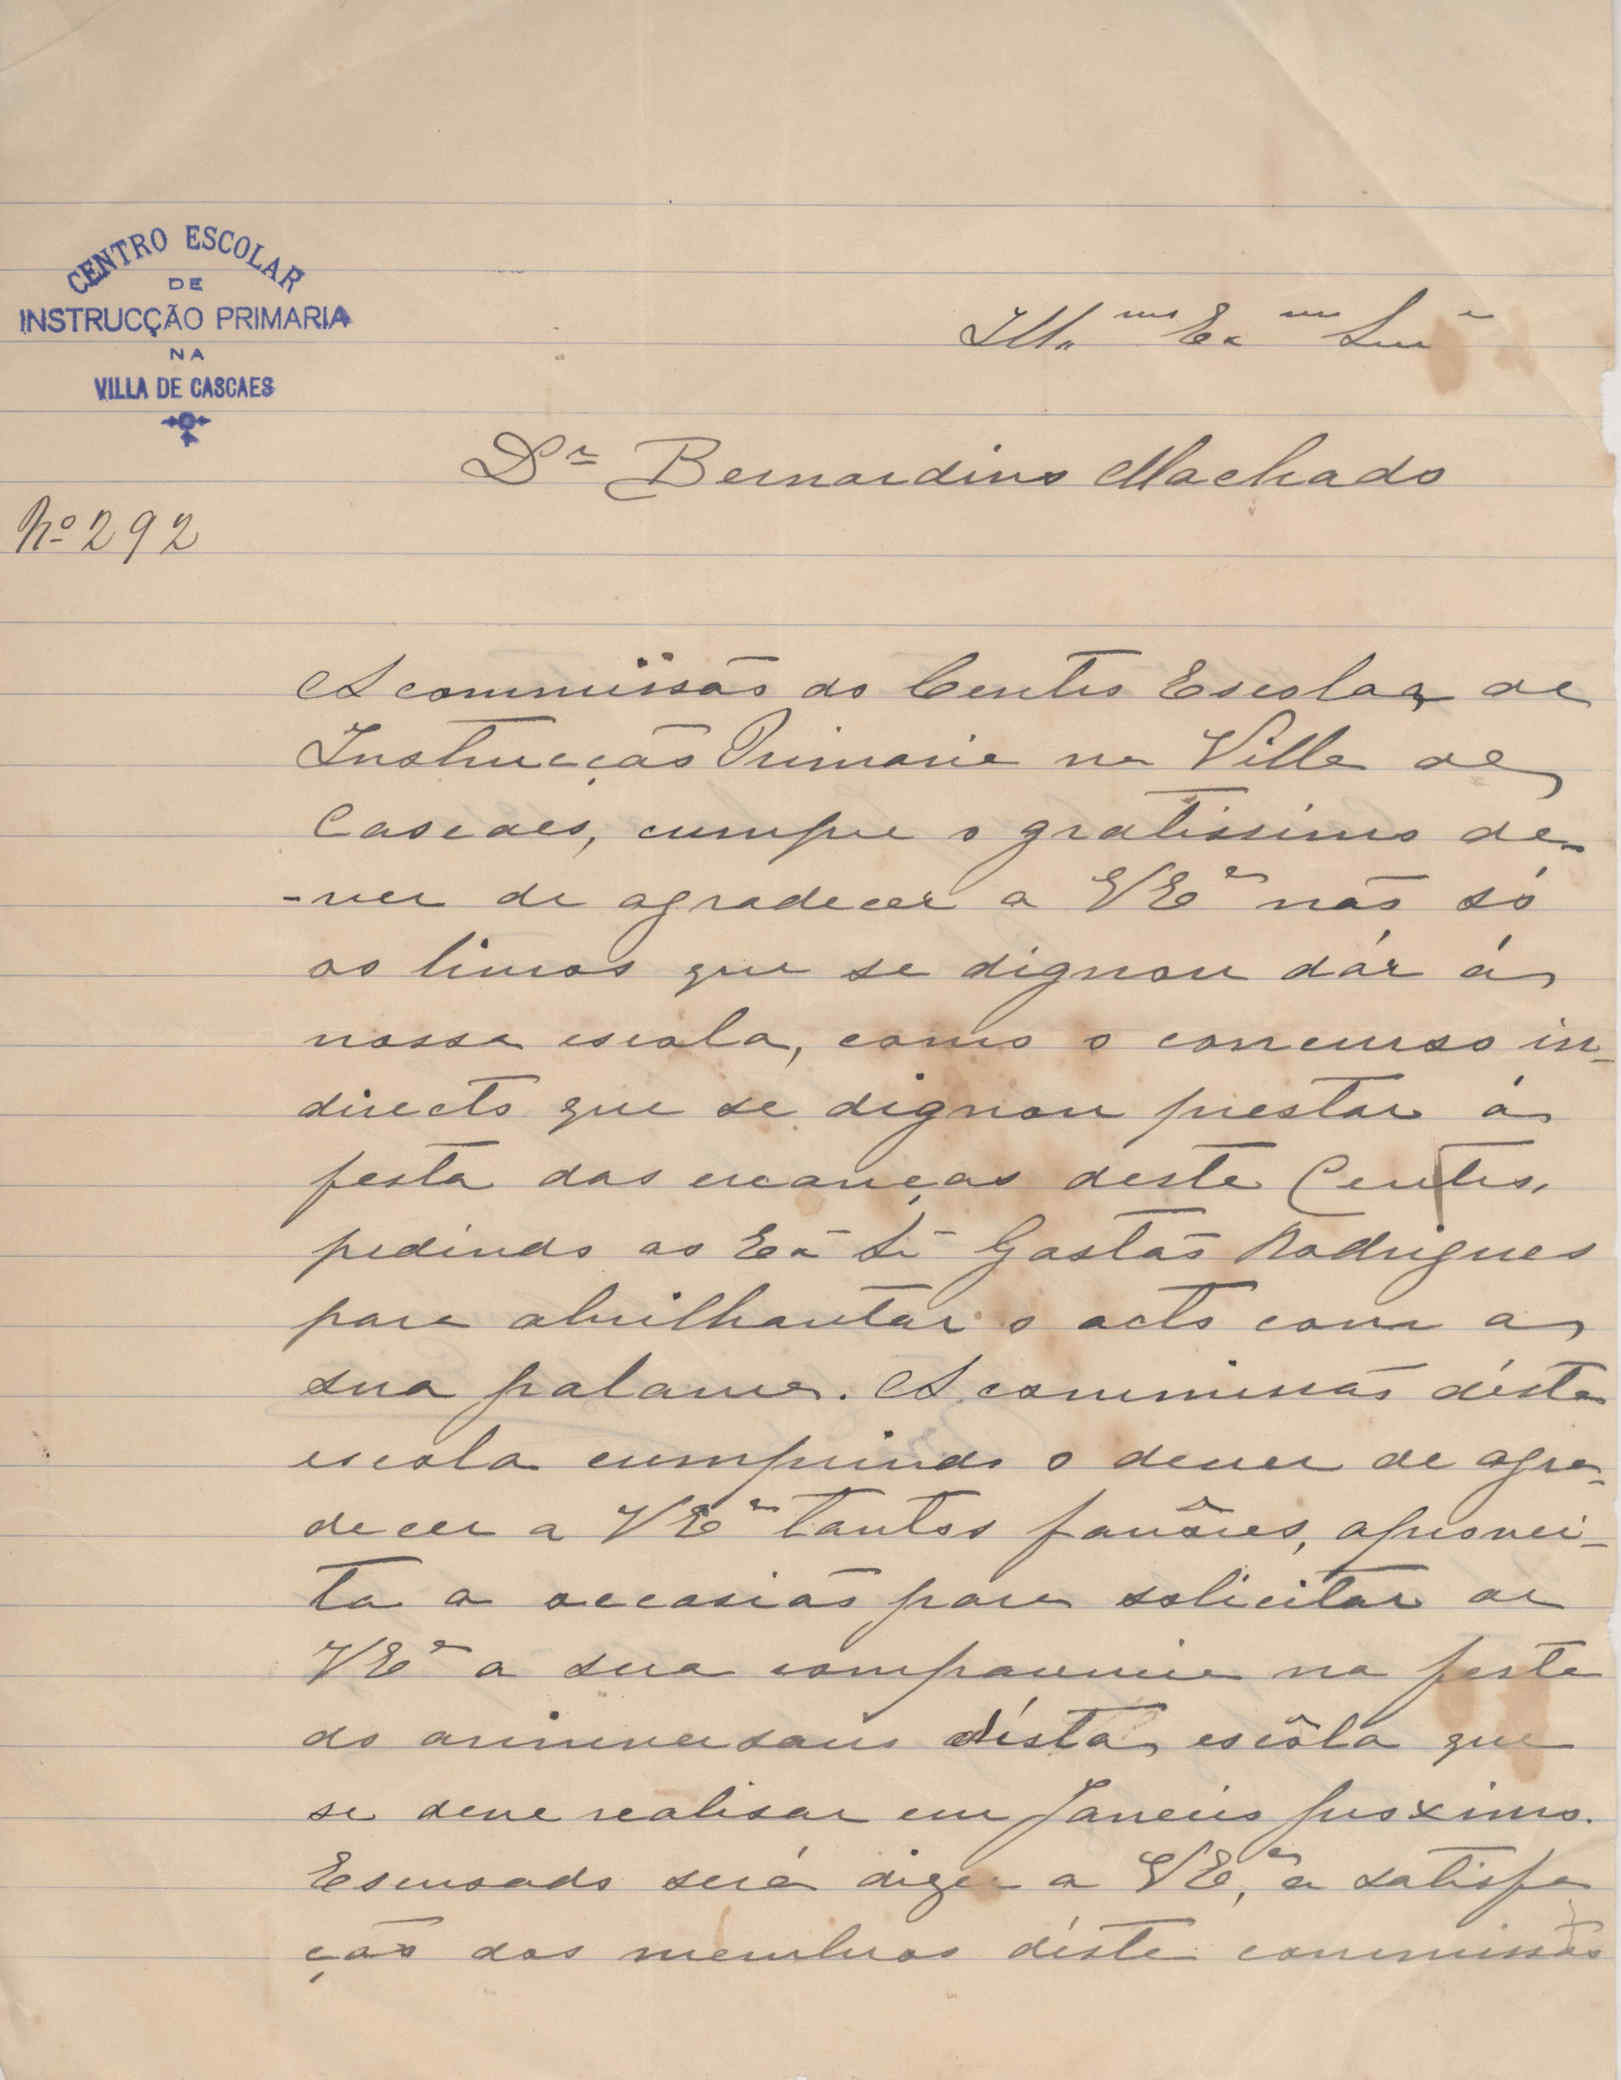 CENTRO ESCOLAR
DE
INSTRUCÇÃO PRIMARIA
NA
VILLA DE CASCAES
Illᵐᵒ Exᵐᵒ Snrᵉ
Dʳ Bernardino Machado
Nº 292
A commissão do Centro Escolar de
Instrucção Primaria na Villa de
Cascaes, cumpre o gratissimo de-
-ver de agradecer a VEˣ não só
os livros que se dignou dár á
nossa escola, como o concurso in-
directo que se dignou prestar á
festa das creanças deste Centro,
pedindo ao Exᵐ Sr Gastão Rodrigues
para abrilhantar o acto com a
sua palavra. A commissão désta
escola cumprindo o dever de agra-
decer a VEˣ tantos favôres, aprovei-
ta a occasião para solicitar de
VEˣ a sua comparencia na festa
do anniversario désta escóla que
se deve realisar em Janeiro proximo.
Escusado será dizer a VEˣ, a satisfa
ção dos membros désta commissão